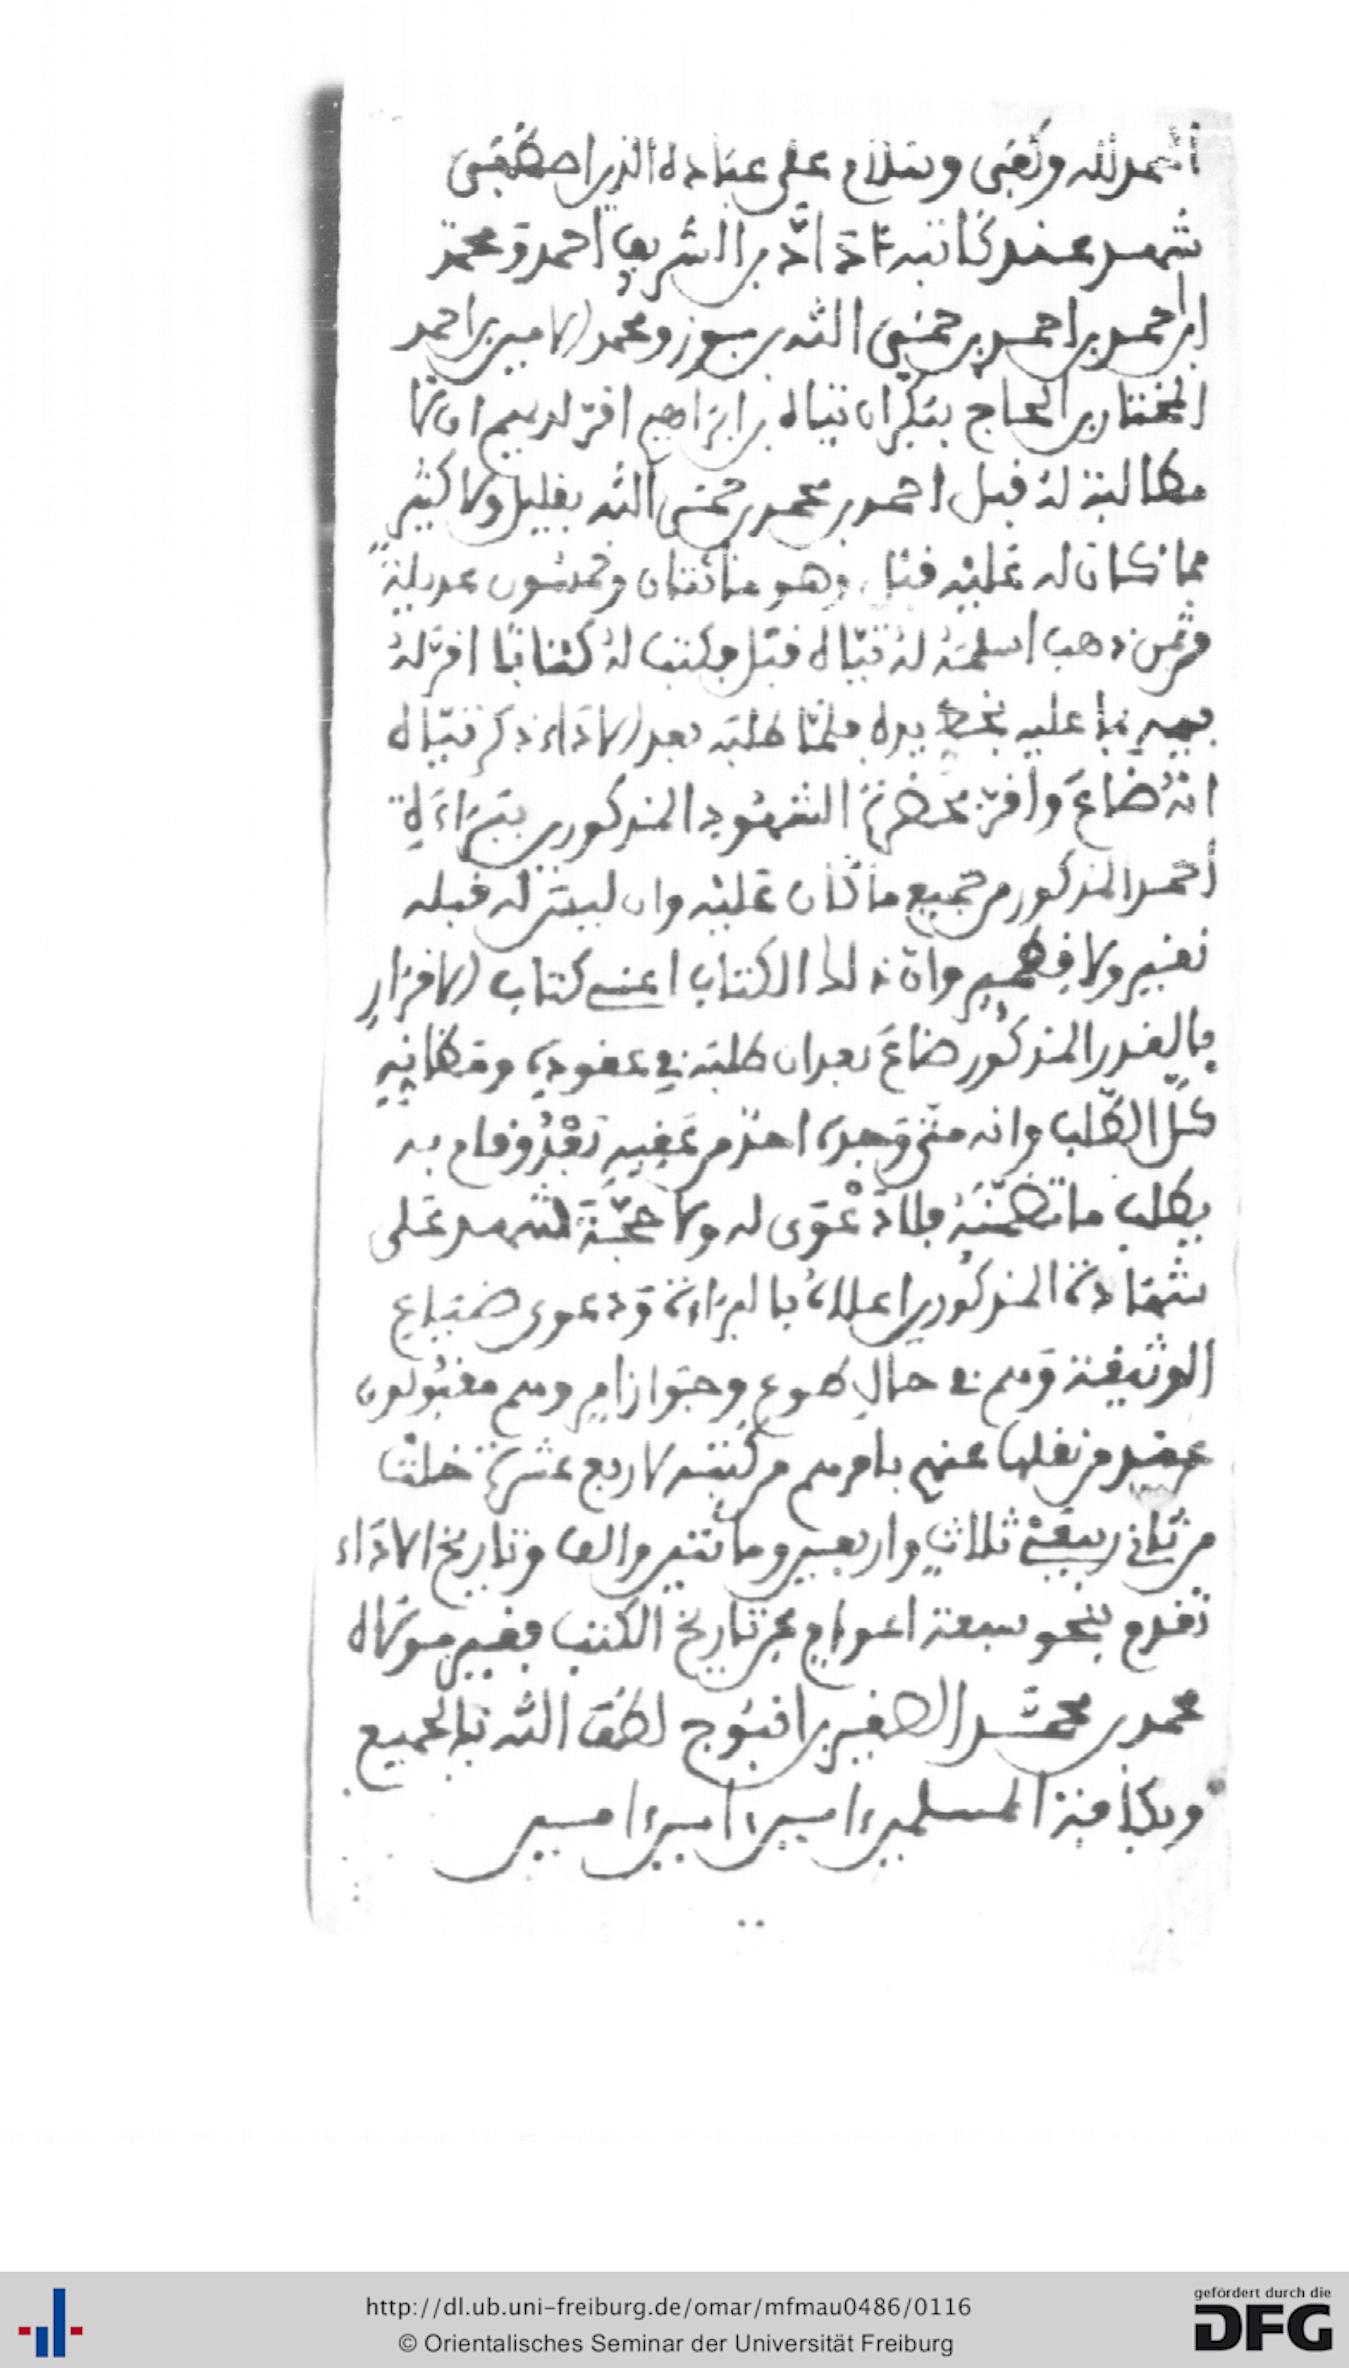 الحمد لله وكفى وسلام على عباده الذين اصطفى
شهد عند كاتبه اد اد بن الشريف احمد ومحمد
بن احمد بن احمد بن حمنى الله بن ومحمد الامين بن احمد
المختار بن الحاج بتكران تياه بن ابراهيم اقر لديهم ان لا
مطالبة له قبل احمد بن محمد بن حمنى الله بقليل ولا كثير
مما كان له عليه قبل وهو مائتان وخمسون عديلة
وثمن ذهب اسلمه له تياه قبل وكتب له كتابا اقر له
فيه بما عليه بخط يده فلما طلبه بعد الاداء ذكر تياه
انه ضاع واقر بحضرة الشهود المذكورين ببراءة
أحمد المذكور من جميع ما كان عليه وان ليس له قبله
نقير ولا قطمير وان ذلك الكتاب اعني كتاب الاقرار
بالقدر المذكور ضاع بعد ان طلبه في عقوده ومظانه
كل الطلب وانه متى وجده احد من عقبه بعد وقام به
يطلب ما تضمنه فلا دعوى له ولا حجة شهد على
شهادة المذكورين اعلاه بالبراءة ودعوى ضياع
الوثيقة وهم في حال طوع وجواز امر وهم مقبولون
عند من نقلها عنهم بامرهم من كتبه لاربع عشرة خلت
من ثاني ربيعي ثلاث واربعين ومائتين والف وتاريخ الاداء
تقدم بنحو سبعة اعوام عن تاريخ الكتب فقير مولاه
محمد بن محمد الصغير بن انبوج لطف الله بالجميع
وبكافة المسلمين ءامين ءامين ءامين
http://dl.ub.uni-freiburg.de/omar/mfmau0486/0116
© Orientalisches Seminar der Universität Freiburg
gefördert durch die
DFG